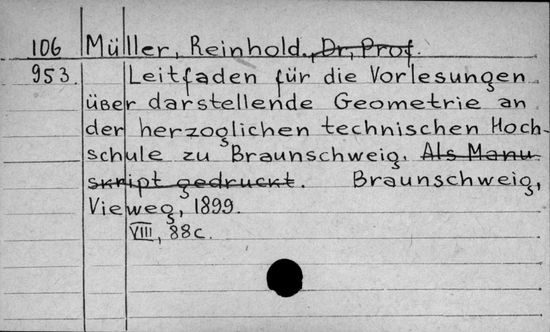 106 Müller, Reinhold., Dr, Prof.
953. Leitfaden für die Vorlesungen
über darstellende Geometrie an
der herzoglichen technischen Hoch-
schule zu Braunschweig. Als Manu
skript gedruckt. Braunschweig,
Vieweg, 1899.
VIII, 88c.